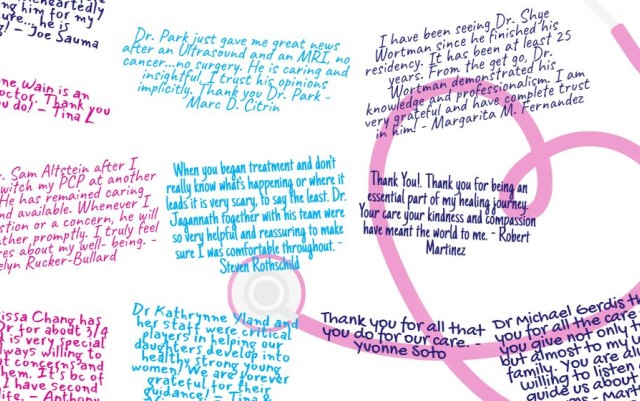 heartedly
ng him for my
ure...he is
! - Joe Sauma
Dr. Park just gave me great news
after an Ultrasound and an MRI, no
cancer...no surgery. He is caring and
insightful. I trust his opinions
implicitly. Thank you Dr. Park -
Marc D. Citrin
I have been seeing Dr. Shye
Wortman since he finished his
residency. It has been at least 25
years. From the get go, Dr.
Wortman demonstrated his
knowledge and professionalism. I am
very grateful and have complete trust
in him! - Margarita M. Fernandez
ne Wain is an
octor. Thank you
u do! - Tina L
r. Sam Altstein after I
witch my PCP at another
He has remained caring
nd available. Whenever I
stion or a concern, he will
ther promptly. I truly feel
res about my well- being. -
elyn Rucker-Bullard
When you began treatment and don't
really know what's happening or where it
leads it is very scary, to say the least. Dr.
Jagannath together with his team were
so very helpful and reassuring to make
sure I was comfortable throughout. -
Steven Rothschild
Thank You!. Thank you for being an
essential part of my healing journey.
Your care your kindness and compassion
have meant the world to me. - Robert
Martinez
issa Chang has
Dr for about 3/4
t is very special
lways willing to
t concerns and
hem. It's bc of
I have second
life. - Anthony
Dr Kathrynne Yland and
her staff were critical
players in helping our
daughters develop into
healthy strong young
women! We are forever
grateful for their
guidance! - Tina &
Thank you for all that
you do for our care. -
Yvonne Soto
Dr Michael Gerdis
you for all the care
you give not only t
but almost to my
family. You are
willing to listen
guide us about
- Mart